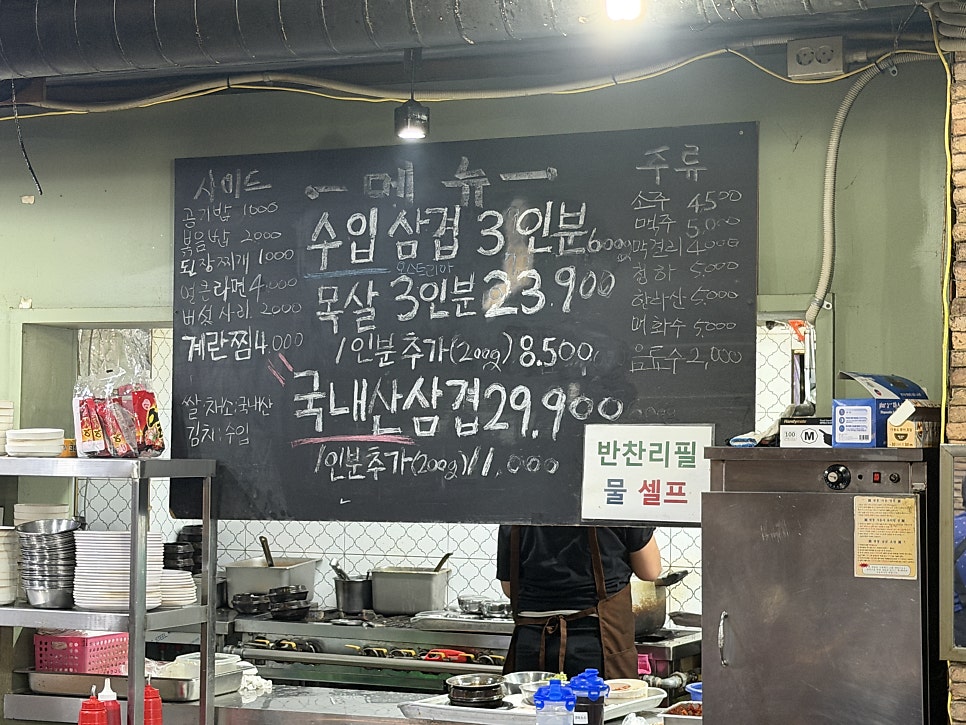 사이드
공기밥 1000
볶음밥 2000
된장찌개 1000
얼큰라면 4,000
버섯사리 2000
계란찜 4,000
쌀.채소:국내산
김치:수입
메뉴
수입 삼겹 3인분 600
오스트리아
목살 3인분 23.900
1인분 추가(200g) 8.500
국내산삼겹 29.900
1인분추가(200g) 11.000
주류
소주 4500
맥주 5,000
막걸리 4,000
청하 5,000
한라산 5,000
매화수 5,000
음료수 2,000
반찬리필
물 셀프
100
M